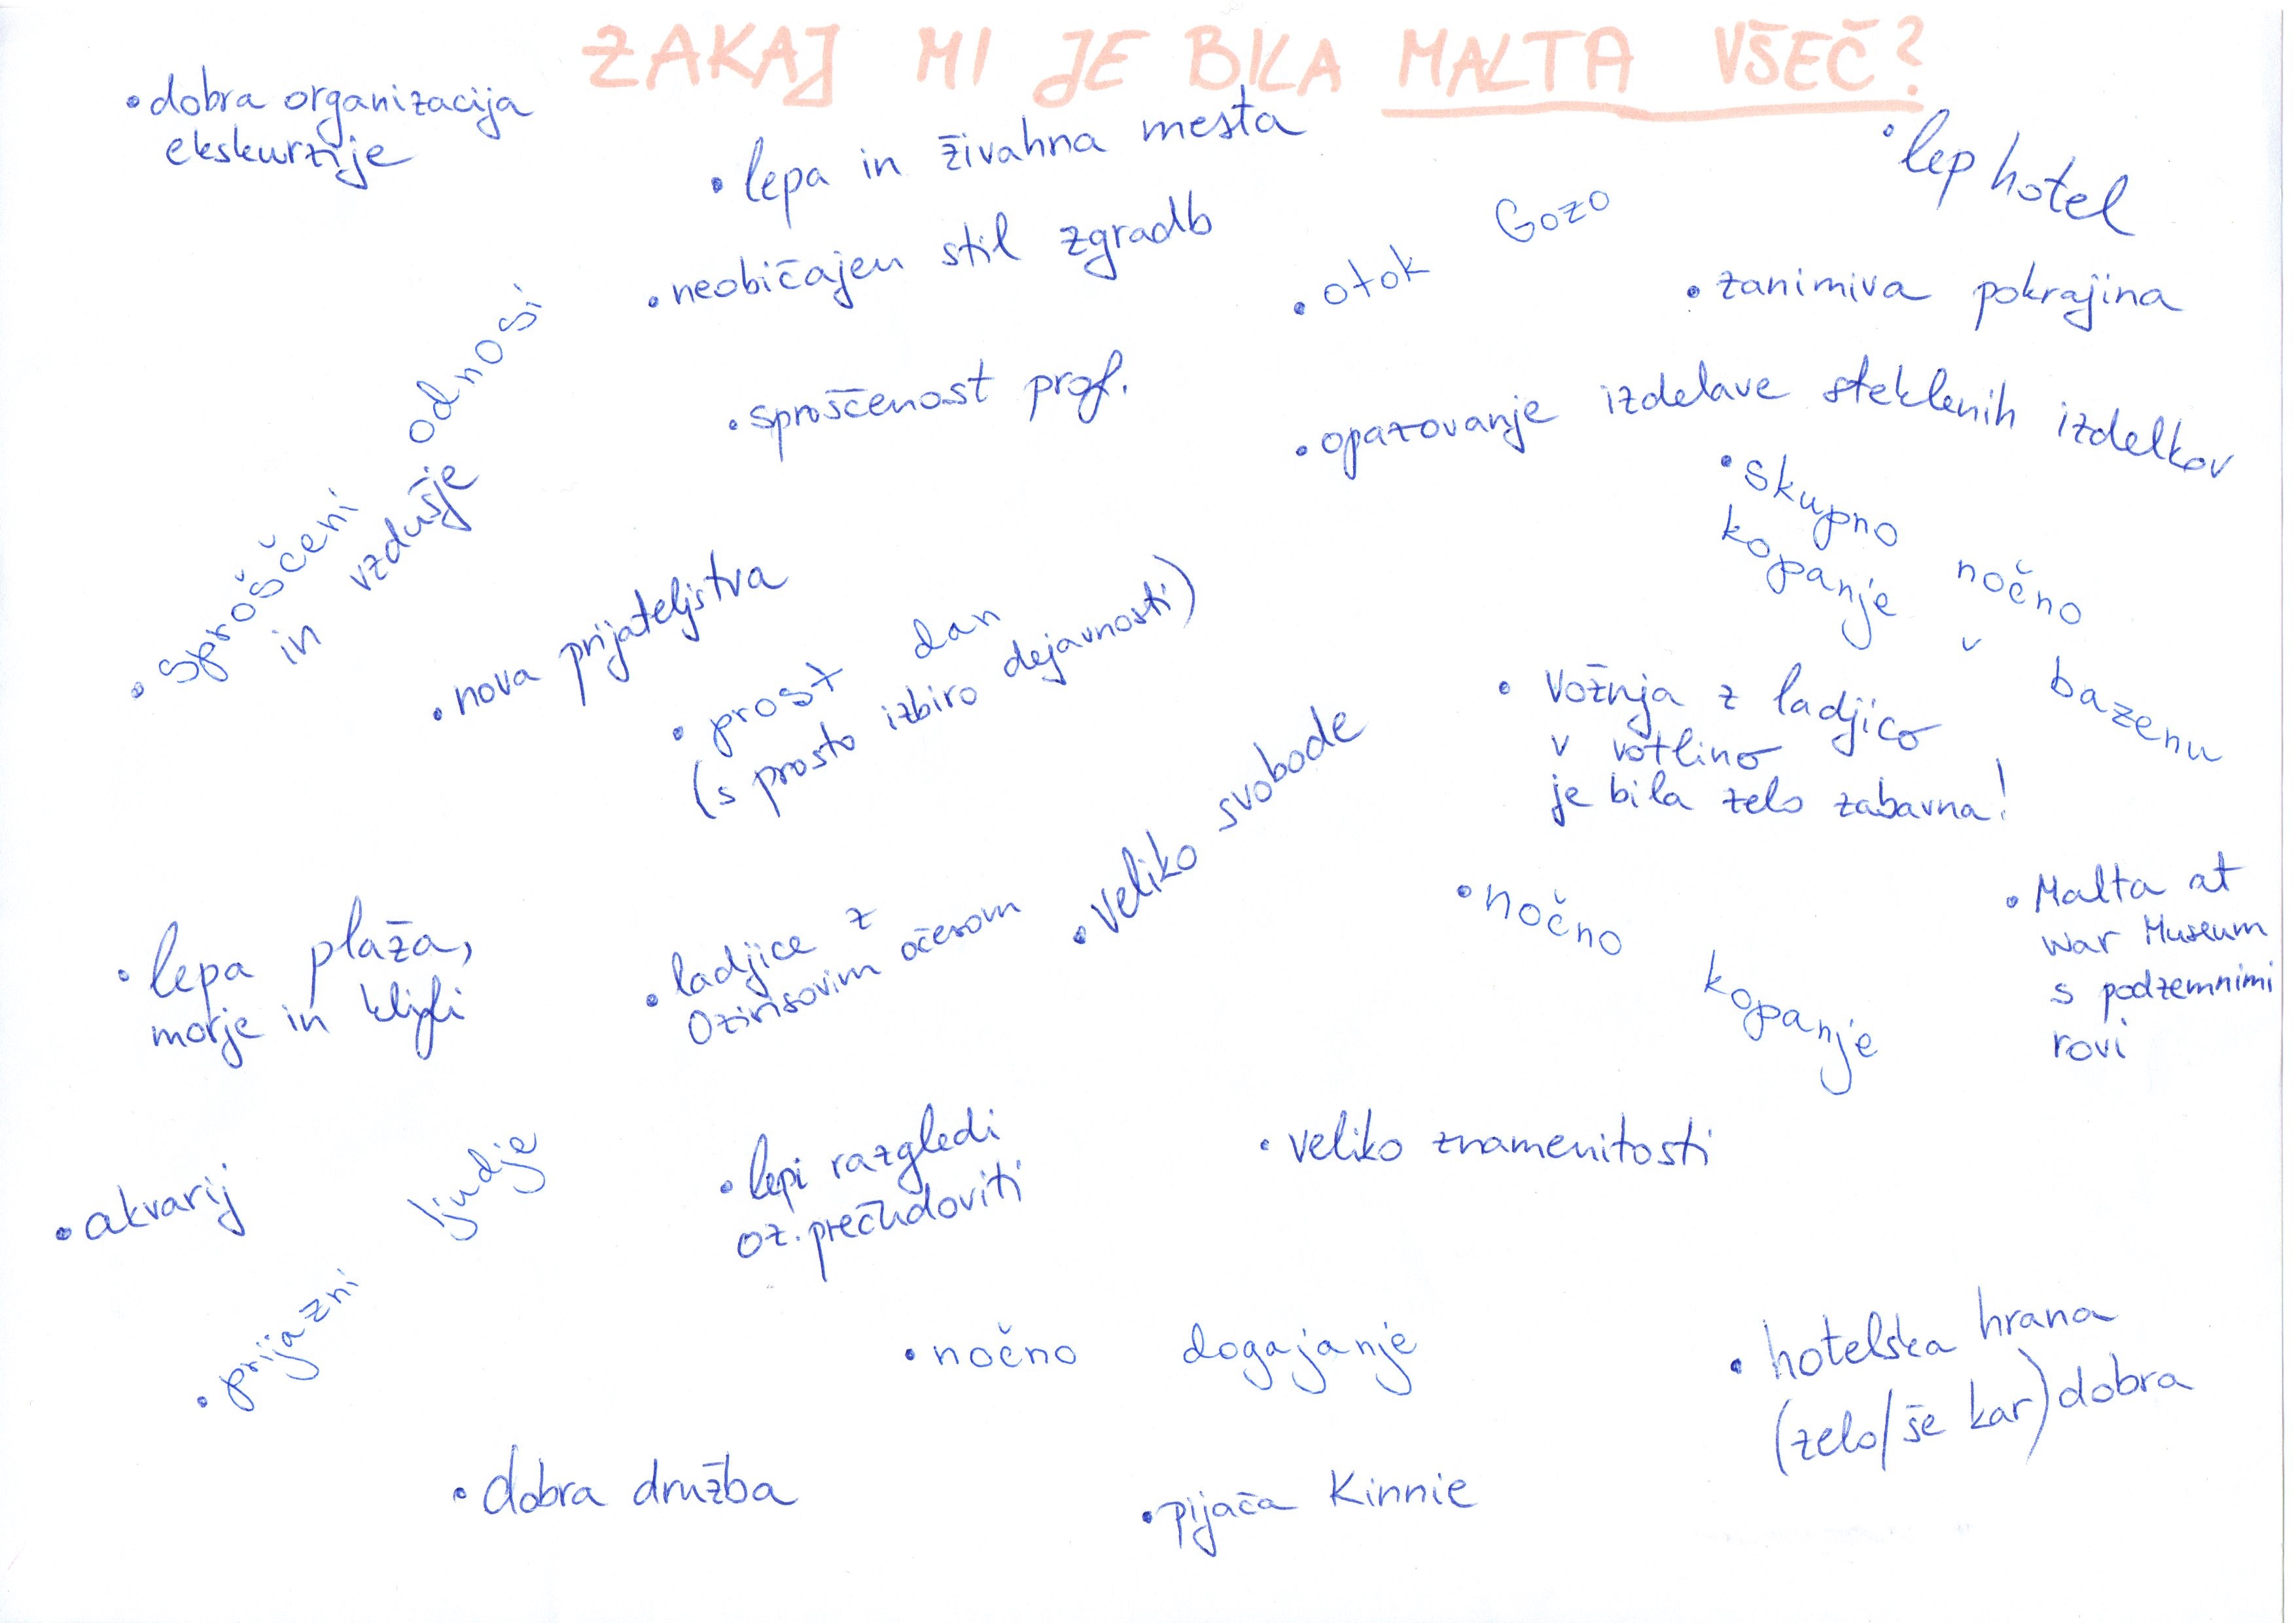 ZAKAJ MI JE BILA MALTA VŠEČ?
• dobra organizacija
ekskurzije
• lepa in živahna mesta
• lep hotel
• neobičajen stil zgradb
• otok Gozo
• zanimiva pokrajina
• sproščeni odnosi
in vzdušje
• sproščenost prof.
• opazovanje izdelave steklenih izdelkov
• skupno nočno
kopanje v bazenu
• nova prijateljstva
• prost dan
(s prosto izbiro dejavnosti)
• vožnja z ladjico
v votlino
je bila zelo zabavna!
• veliko svobode
• lepa plaža,
morje in klifi
• ladjice z
Ozirisovim očesom
• nočno kopanje
• Malta at
war Museum
s podzemnimi
rovi
• akvarij
• prijazni ljudje
• lepi razgledi
oz. prečudoviti
• veliko znamenitosti
• nočno dogajanje
• hotelska hrana
(zelo/še kar) dobra
• dobra družba
• pijača Kinnie